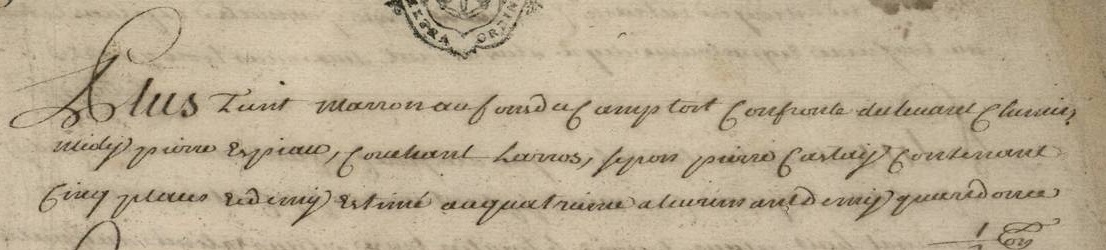 EXTRA ORDIN
Plus tient marron au fons du Camp tort Confronte du levant Chemin,
midy pierre Espiau, Couchant Larros, sepon pierre Castay Contenant
Cinq places et demy Estimé au quatrieme alivrimant demy quar donce
½